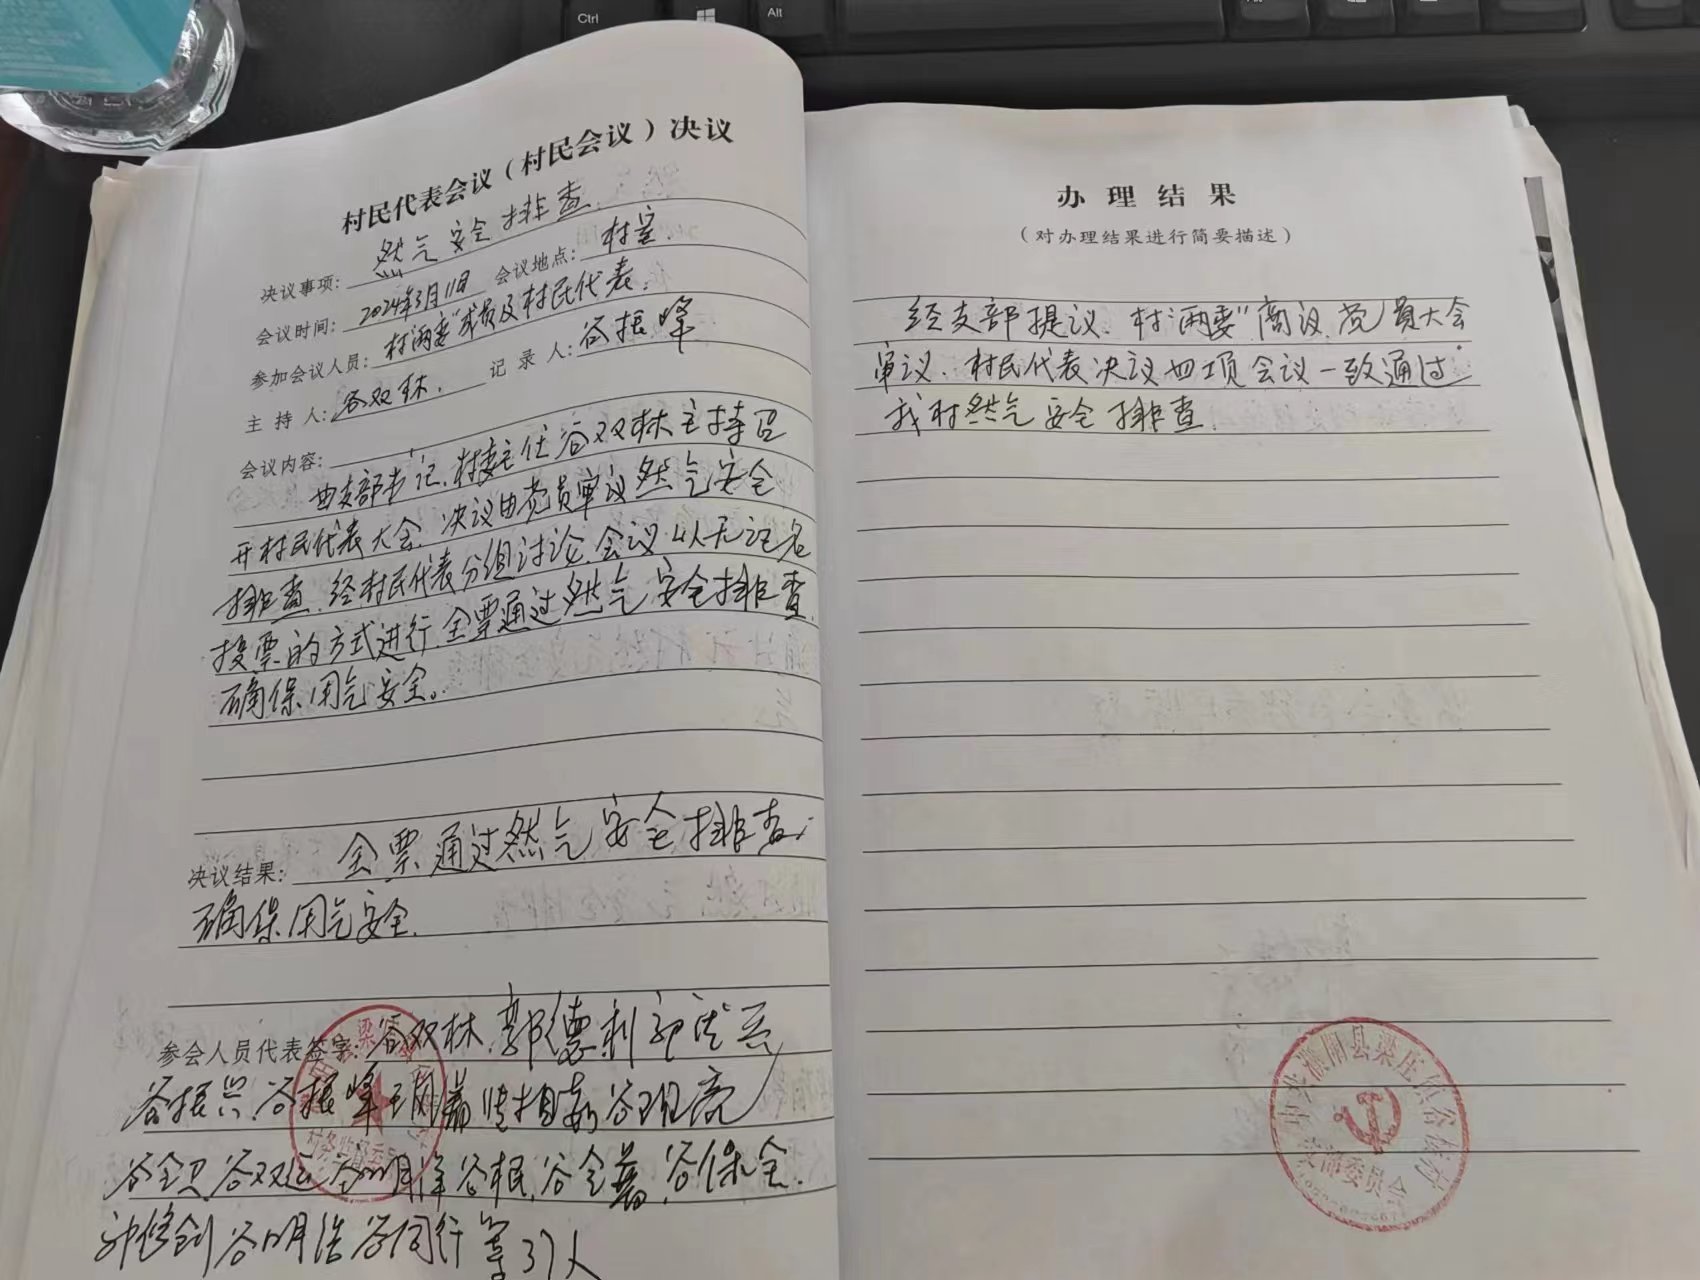 Ctrl
Alt
村民代表会议（村民会议）决议
决议事项: 然气安全排查.
会议时间: 2024年3月11日 会议地点: 村室.
参加会议人员: 村"两委"成员及村民代表.
主 持 人: 谷双林. 记 录 人: 谷振峰
会议内容:
由支部书记、村委主任谷双林主持召
开村民代表大会. 决议由党员审议然气安全
排查. 经村民代表分组讨论. 会议以无记名
投票的方式进行. 全票通过然气安全排查.
确保用气安全。
决议结果: 全票通过然气安全排查.
确保用气安全.
参会人员代表签字: 谷双林. 郭德利
谷振兴. 谷振峰
谷双运 谷根. 谷保全.
谷同行 等37人
村务监督委
办 理 结 果
（对办理结果进行简要描述）
经支部提议、村"两委"商议、党员大会
审议、村民代表决议四项会议一致通过
我村然气安全排查.
中共濮阳县梁庄镇谷家村
支部委员会